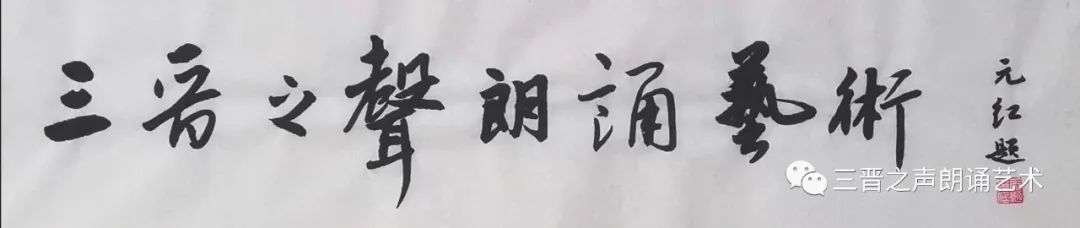 三晋之聲朗誦藝術
元红题
三晋之声朗诵艺术